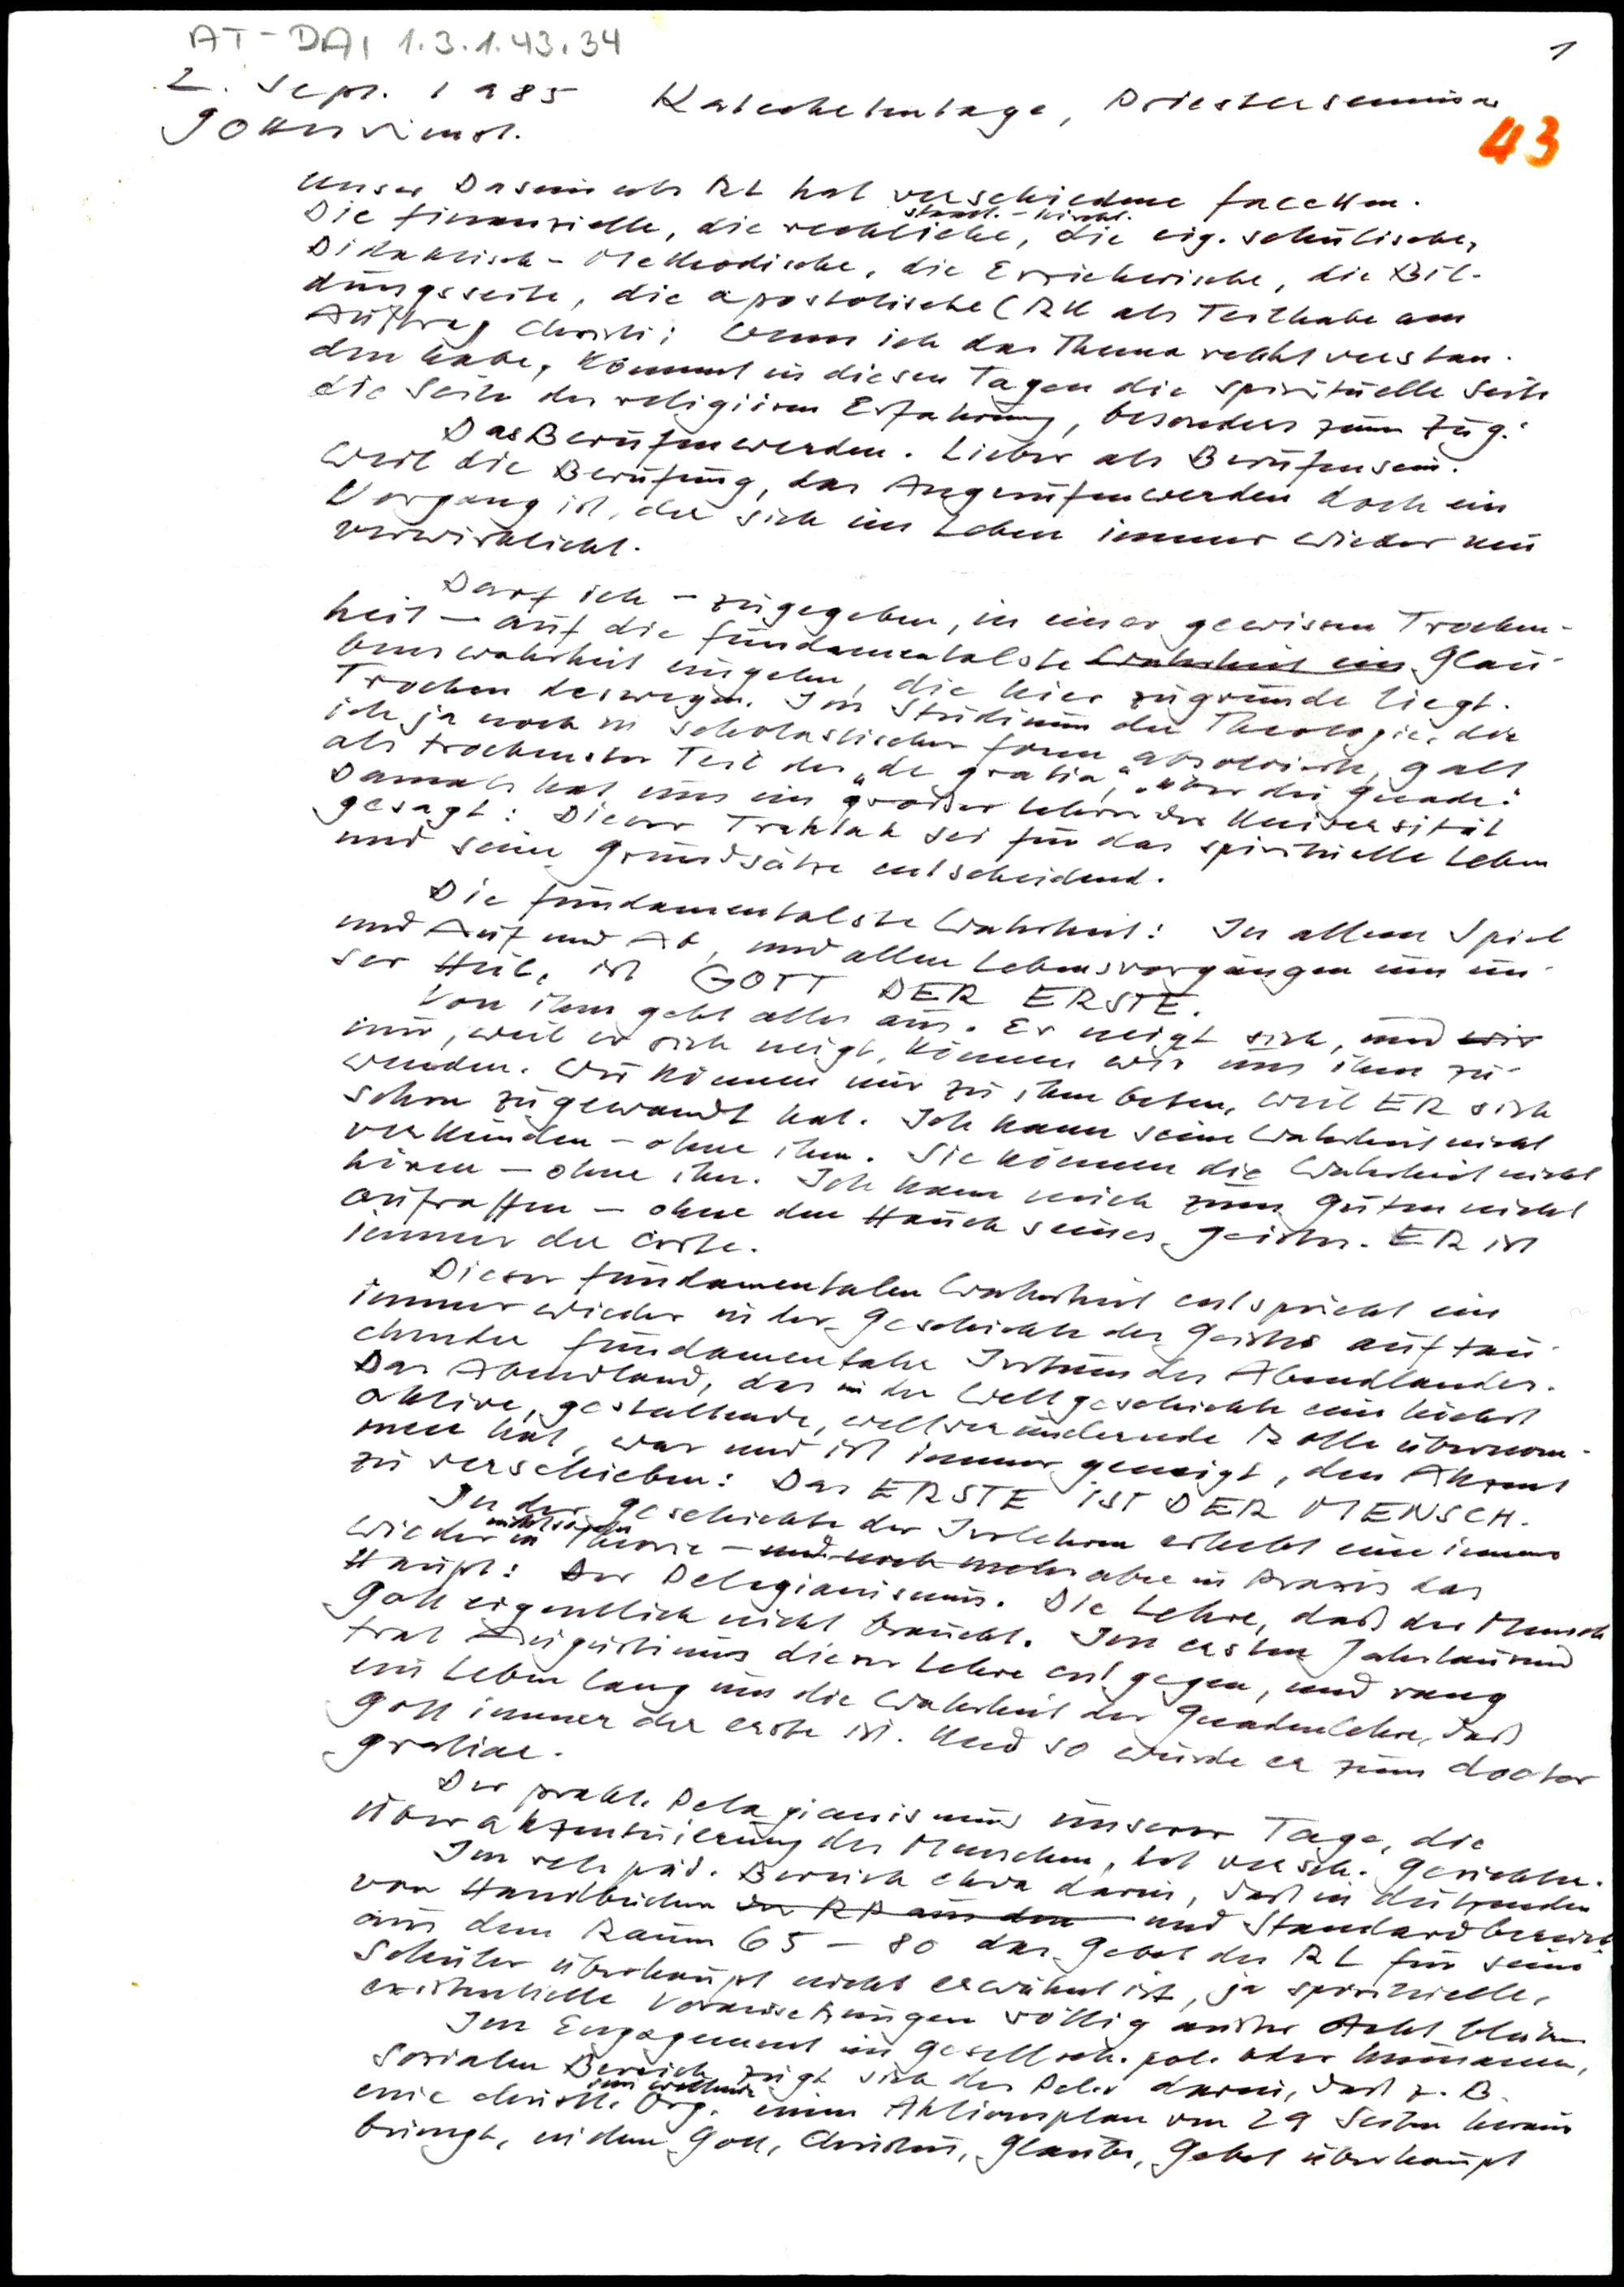 AT-DAI 1.3.1.43.34
1
2. Sept. 1985 Katechetentage, Priesterseminar
Gottesdienst.
43
Unser Dasein als RL hat verschiedene Facetten.
staatl. - kirchl.
Die finanzielle, die rechtliche, die eig. schulische,
Didaktisch - Methodische, die Erzieherische, die Bil-
dungsseite, die apostolische (RU als Teilhabe am
Auftrag Christi; Wenn ich das Thema recht verstan-
den habe, kommt in diesen Tagen die spirituelle Seite
die Seite der religiösen Erfahrung, besonders zum Zug:
Das Berufenwerden. Lieber als Berufensein.
Weil die Berufung, das Angerufenwerden doch ein
Vorgang ist, der sich im Leben immer wieder neu
verwirklicht.
Darf ich - zugegeben, in einer gewissen Trocken-
heit - auf die fundamentalste Wahrheit ein Glau-
benswahrheit eingehen, die hier zugrunde liegt.
Trocken deswegen. Im Studium der Theologie, die
ich ja noch in scholastischer Form absolvierte, galt
als trockenster Teil der „de gratia", „über die Gnade".
Damals hat uns ein großer Lehrer der Universität
gesagt: Dieser Traktat sei für das spirituelle Leben
und seine Grundsätze entscheidend.
Die fundamentalste Wahrheit: In allem Spiel
und Auf und Ab, und allen Lebensvorgängen um un-
ser Heil, ist GOTT DER ERSTE.
Von ihm geht alles aus. Er neigt sich, und wir
nur, weil er sich neigt, können wir uns ihm zu-
wenden. Wir können nur zu ihm beten, weil ER sich
schon zugewandt hat. Ich kann seine Wahrheit nicht
verkünden - ohne ihn. Sie können die Wahrheit nicht
hören - ohne ihn. Ich kann mich zum Guten nicht
aufraffen - ohne den Hauch seines Geistes. ER ist
immer der Erste.
Dieser fundamentalen Wahrheit entspricht ein
immer wieder in der Geschichte des Geistes auftau-
chender fundamentaler Irrtum des Abendlandes.
Das Abendland, das in der Weltgeschichte eine höchst
aktive, gestaltende, weltverändernde Rolle übernom-
men hat, war und ist immer geneigt, den Akzent
zu verschieben: Das ERSTE IST DER MENSCH.
In der Geschichte der Irrlehren erhebt eine immer
nicht so sehr
wieder in Theorie - und noch mehr aber in Praxis das
Haupt: Der Pelagianismus. Die Lehre, daß der Mensch
Gott eigentlich nicht braucht. Im ersten Jahrtausend
trat Augustinus dieser Lehre entgegen, und rang
ein Leben lang um die Wahrheit der Gnadenlehre, daß
Gott immer der erste ist. Und so wurde er zum doctor
gratiae.
Der prakt. Pelagianismus unserer Tage, die
Überakzentuierung des Menschen, hat versch. Gesichter.
Im rel. päd. Bereich etwa darin, daß in dutzenden
von Handbüchern der RP aus den und Standardbereich
aus dem Raum 65 - 80 das Gebet des RL für seine
Schüler überhaupt nicht erwähnt ist, ja spirituelle,
existentielle Voraussetzungen völlig außer Acht bleiben
Im Engagement im gesellsch. pol. oder humanen,
sozialen Bereich zeigt sich der Pel. darin, daß z. B.
eine christl. Org. einen Aktionsplan von 29 Seiten heraus
bringt, in dem Gott, Christus, Glaube, Gebet überhaupt